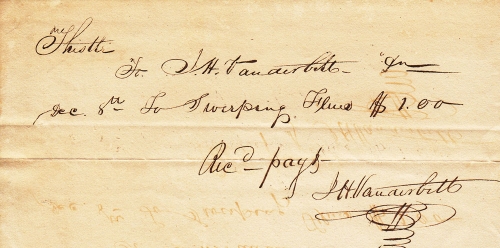 To J. H. Vanderbilt Dr
Dec. 8th To Swerping Flues $1.00
Rec'd payt
J H Vanderbilt